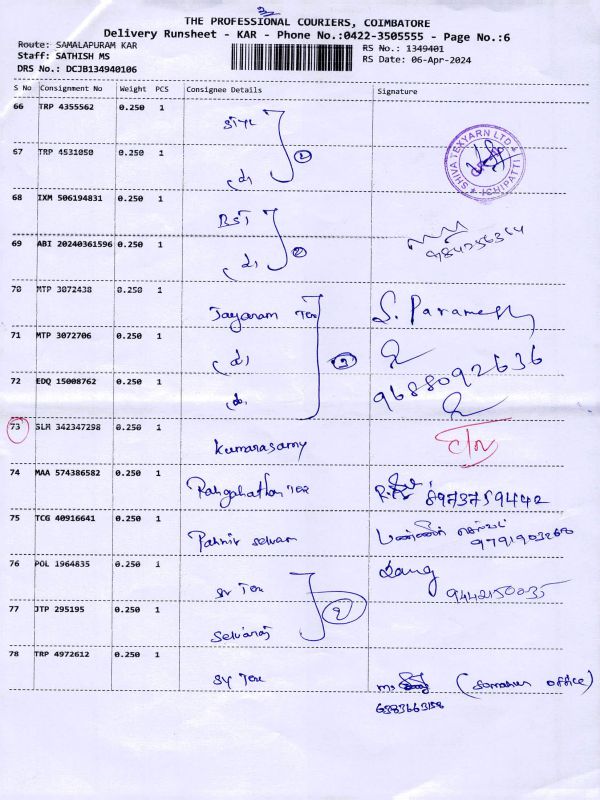 THE PROFESSIONAL COURIERS, COIMBATORE
Delivery Runsheet - KAR - Phone No.:0422-3505555 - Page No.:6
Route: SAMALAPURAM KAR
RS No.: 1349401
Staff: SATHISH MS
RS Date: 06-Apr-2024
DRS No.: DCJB134940106
S No Consignment No Weight PCS Consignee Details Signature
66 TRP 4355562 0.250 1
STYL
SHIVA TEXYARN LTD ICHIPATTI
67 TRP 4531050 0.250 1
(2)
68 IXM 506194831 0.250 1
BST
69 ABI 20240361596 0.250 1
(2)
70 MTP 3072438 0.250 1
Jayaram Tex S. Paramesh
71 MTP 3072706 0.250 1
9688092636
72 EDQ 15008762 0.250 1
73 SLM 342347298 0.250 1
Kumarasamy
74 MAA 574386582 0.250 1
Tex 8973759442
75 TCG 40916641 0.250 1
Selvam 9791903268
76 POL 1964835 0.250 1
SV Tex 9442150035
77 JTP 295195 0.250 1
Selvaraj (2)
78 TRP 4972612 0.250 1
SY Tex office)
6383663158